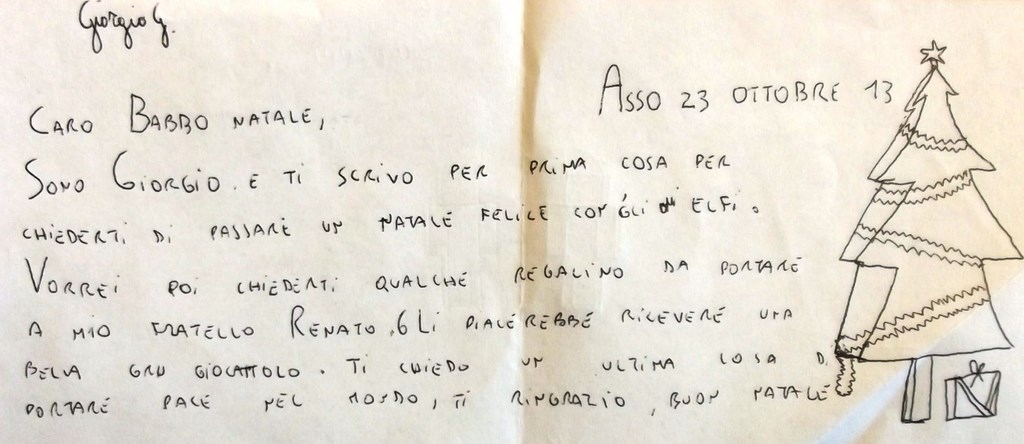 Giorgio G.
ASSO 23 OTTOBRE 13
CARO BABBO NATALE,
SONO GIORGIO. E TI SCRIVO PER PRIMA COSA PER
CHIEDERTI DI PASSARE UN NATALE FELICE CON GLI ELFI.
VORREI POI CHIEDERTI QUALCHE REGALINO DA PORTARE
A MIO FRATELLO RENATO, GLI PIACEREBBE RICEVERE UNA
BELLA GRU GIOCATTOLO. TI CHIEDO UN ULTIMA COSA DI
PORTARE PACE NEL MONDO, TI RINGRAZIO, BUON NATALE